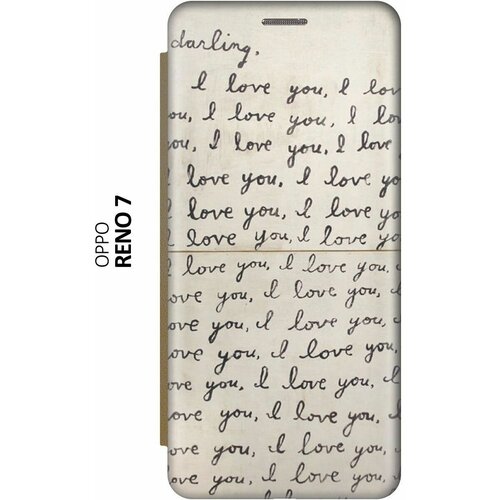 OPPO
RENO 7
darling,
I love you, I lov
ou, I love you, I lo
you, I love you, I love
I love you, I love yo
I love you, I love yo
I love you, I love yo
I love you, I love you,
ove you, I love you, I
love you, I love you, I
ove you, I love you, I
ove you, I love you, I
ove you, I love you, I
ove you, I love you, I
love you, I love you,
I love you, I